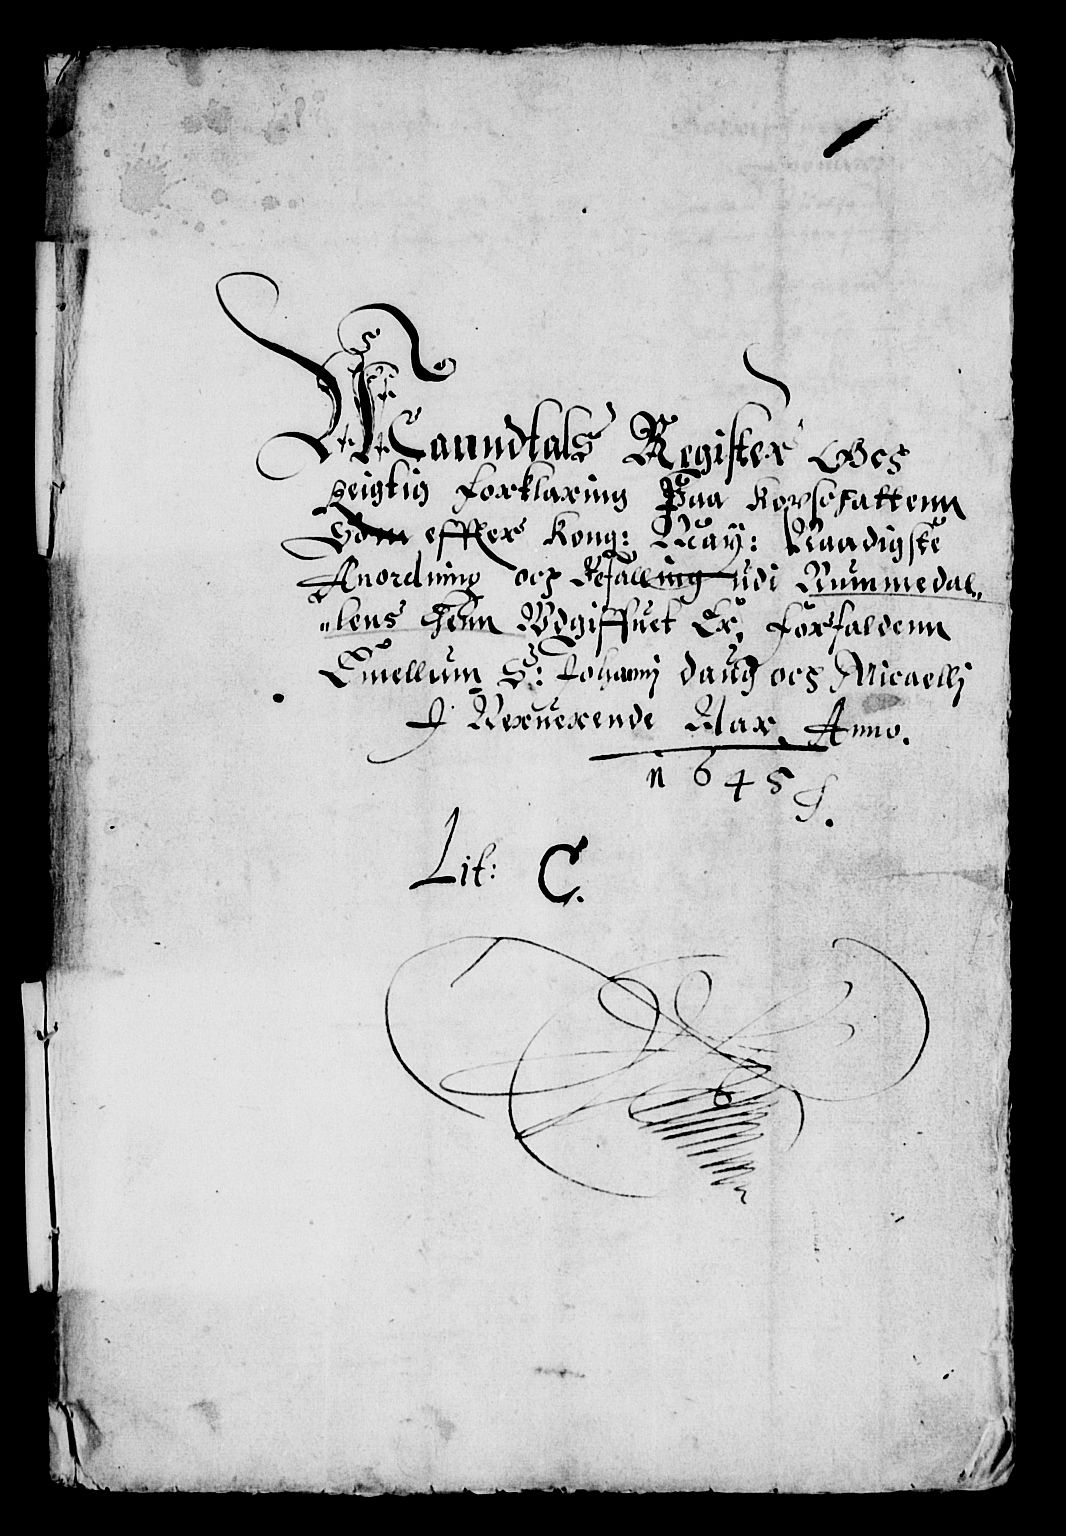 Manndtals Register Och
Rigtig forklaring Paa Kopschattenn
Som effter Kong: May: Naadigste
Anordning och Befalling udi Nummedal„
„lens Lenn Wdgiffuet Er, forfaldenn
Emellum S: Johanni daug och Micaelij
I Neruerende Aar, Anno.
1645
Lit: C.